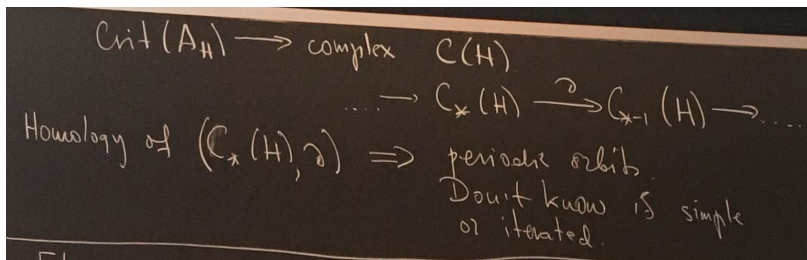 Crit(A_H) → complex C(H)
.... → C_*(H) —∂→ C_{*-1}(H) → .....
Homology of (C_*(H), ∂) ⇒ periodic orbits.
Don't know if simple
or iterated.